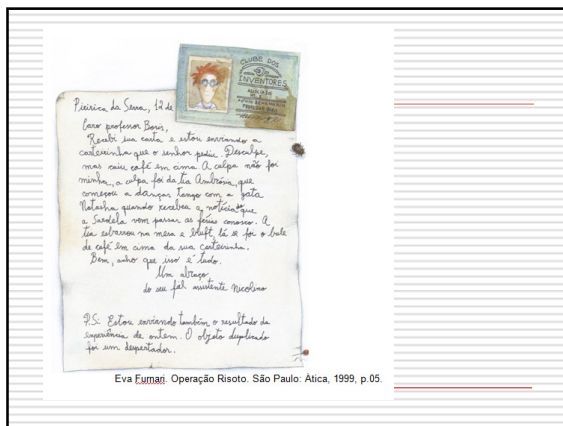 CLUBE DOS
INVENTORES
Piririca da Serra, 12 de
Caro professor Boris,
Recebi sua carta e estou enviando a
carteirinha que o senhor pediu. Desculpe,
mas caiu café em cima. A culpa não foi
minha, a culpa foi da tia Ambrósia, que
começou a dançar tango com a gata
Natasha quando recebeu a notícia que
a Sardela vem passar as férias conosco. A
tia esbarrou na mesa e bluft, lá se foi o bule
de café em cima da sua carteirinha.
Bem, acho que isso é tudo.
Um abraço
do seu fiel assistente Nicolino
P.S: Estou enviando também o resultado da
experiência de ontem. O objeto duplicado
foi um despertador.
Eva Furnari. Operação Risoto. São Paulo: Ática, 1999, p.05.